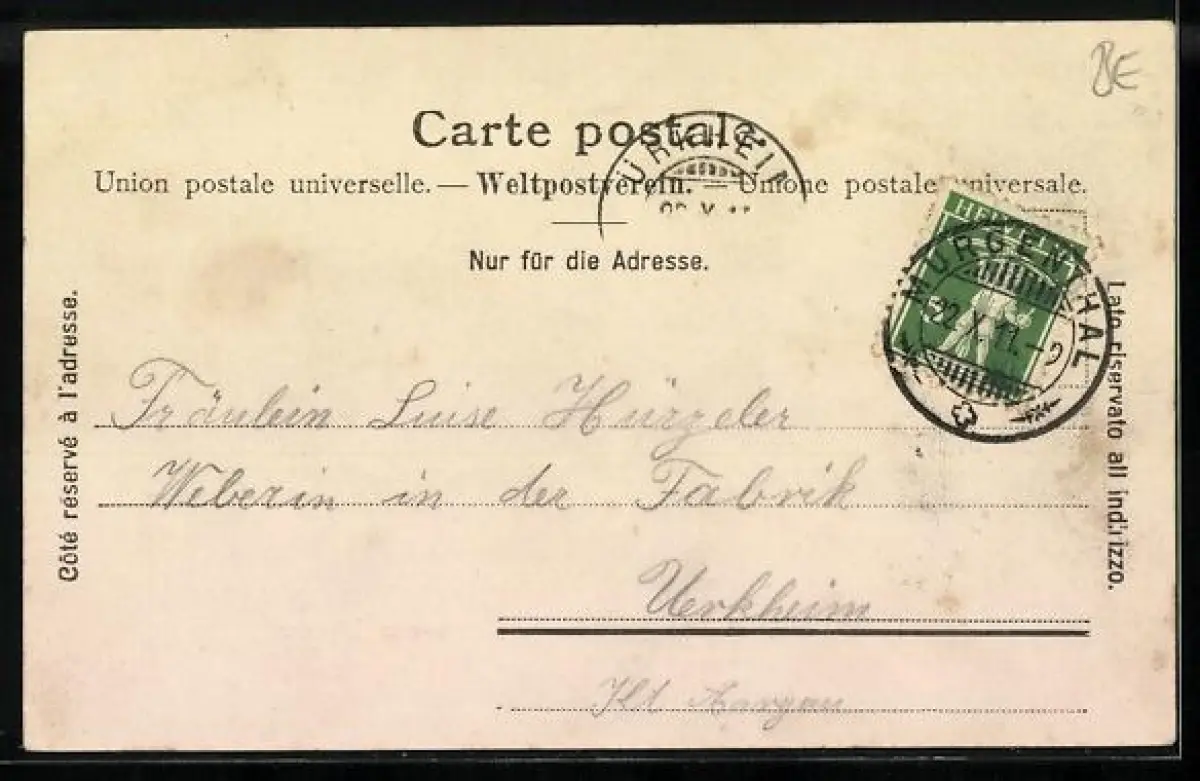 BE
Carte postale.
Union postale universelle. — Weltpostverein. — Unione postale universale.
ÜRKHEIN
22.X.11
Nur für die Adresse.
HELVETIA
MURGENTHAL
22.X.11.-9
Côté réservé à l'adresse.
Lato riservato all indirizzo.
Fräulein Luise Hürzeler
Weberin in der Fabrik
Uerkheim
Kt Aargau